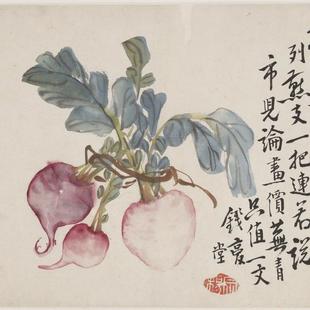 列支一把連
市見論畫價蕪青
只值一文
錢堂